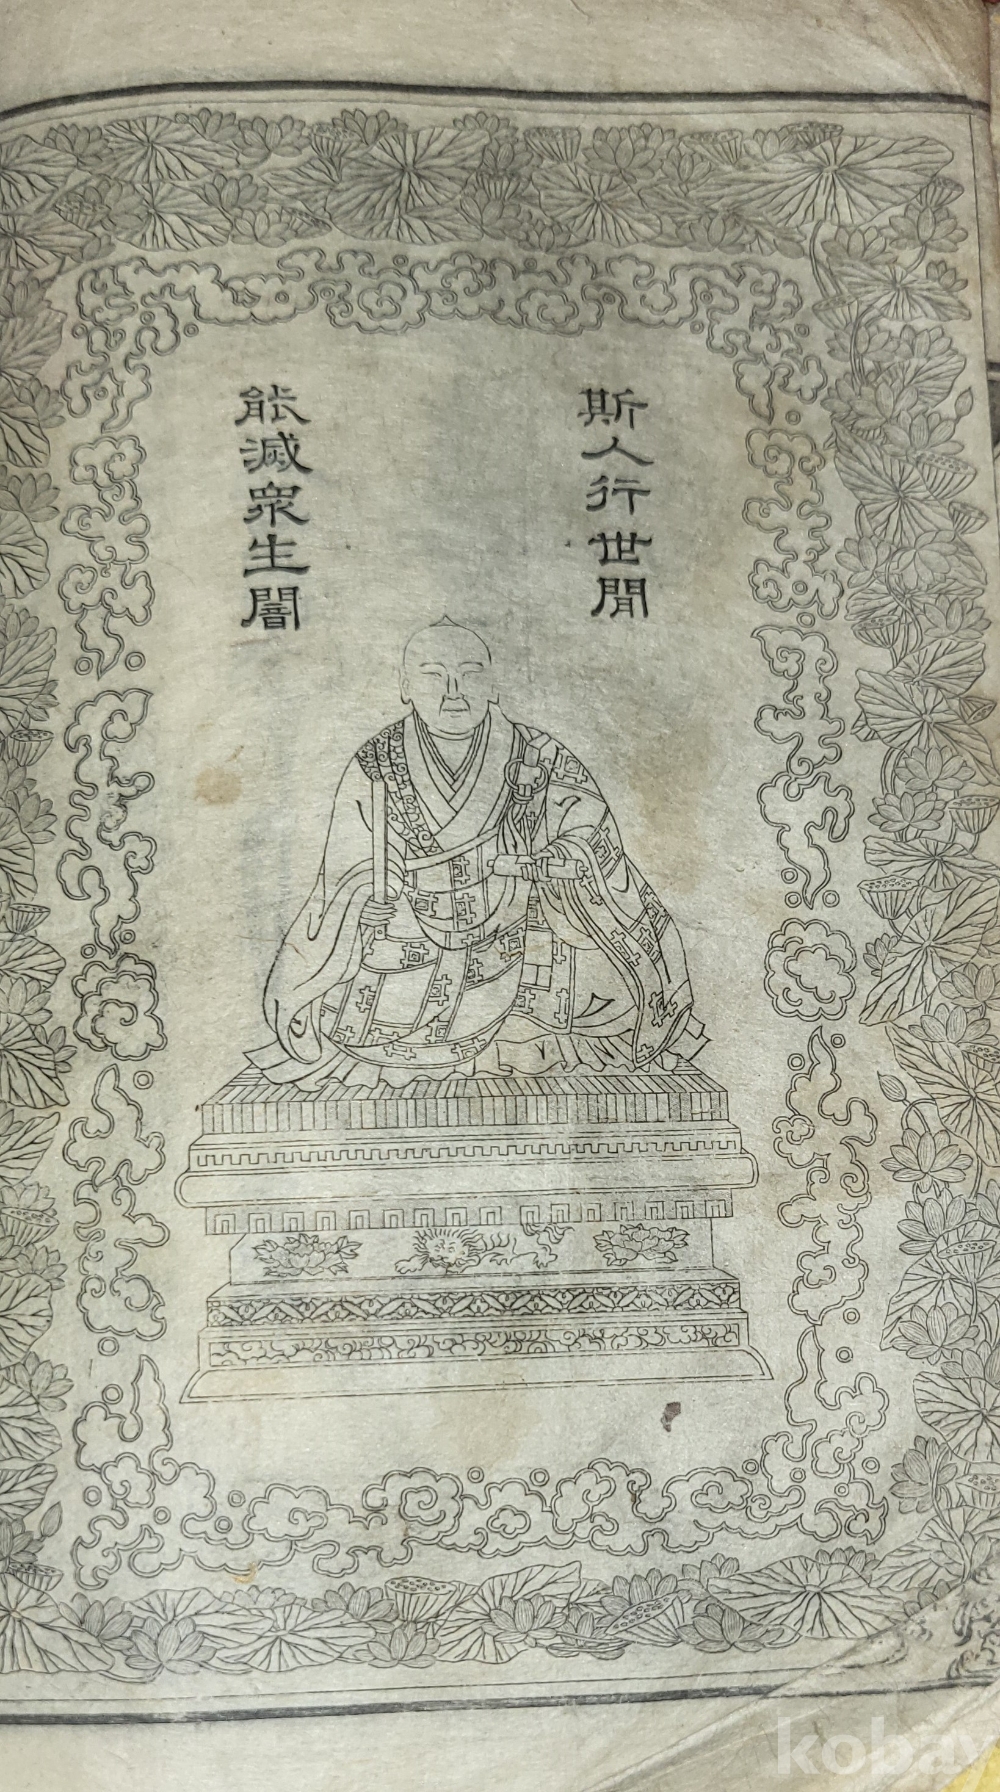 斯人行世間
能滅衆生闇
kobay